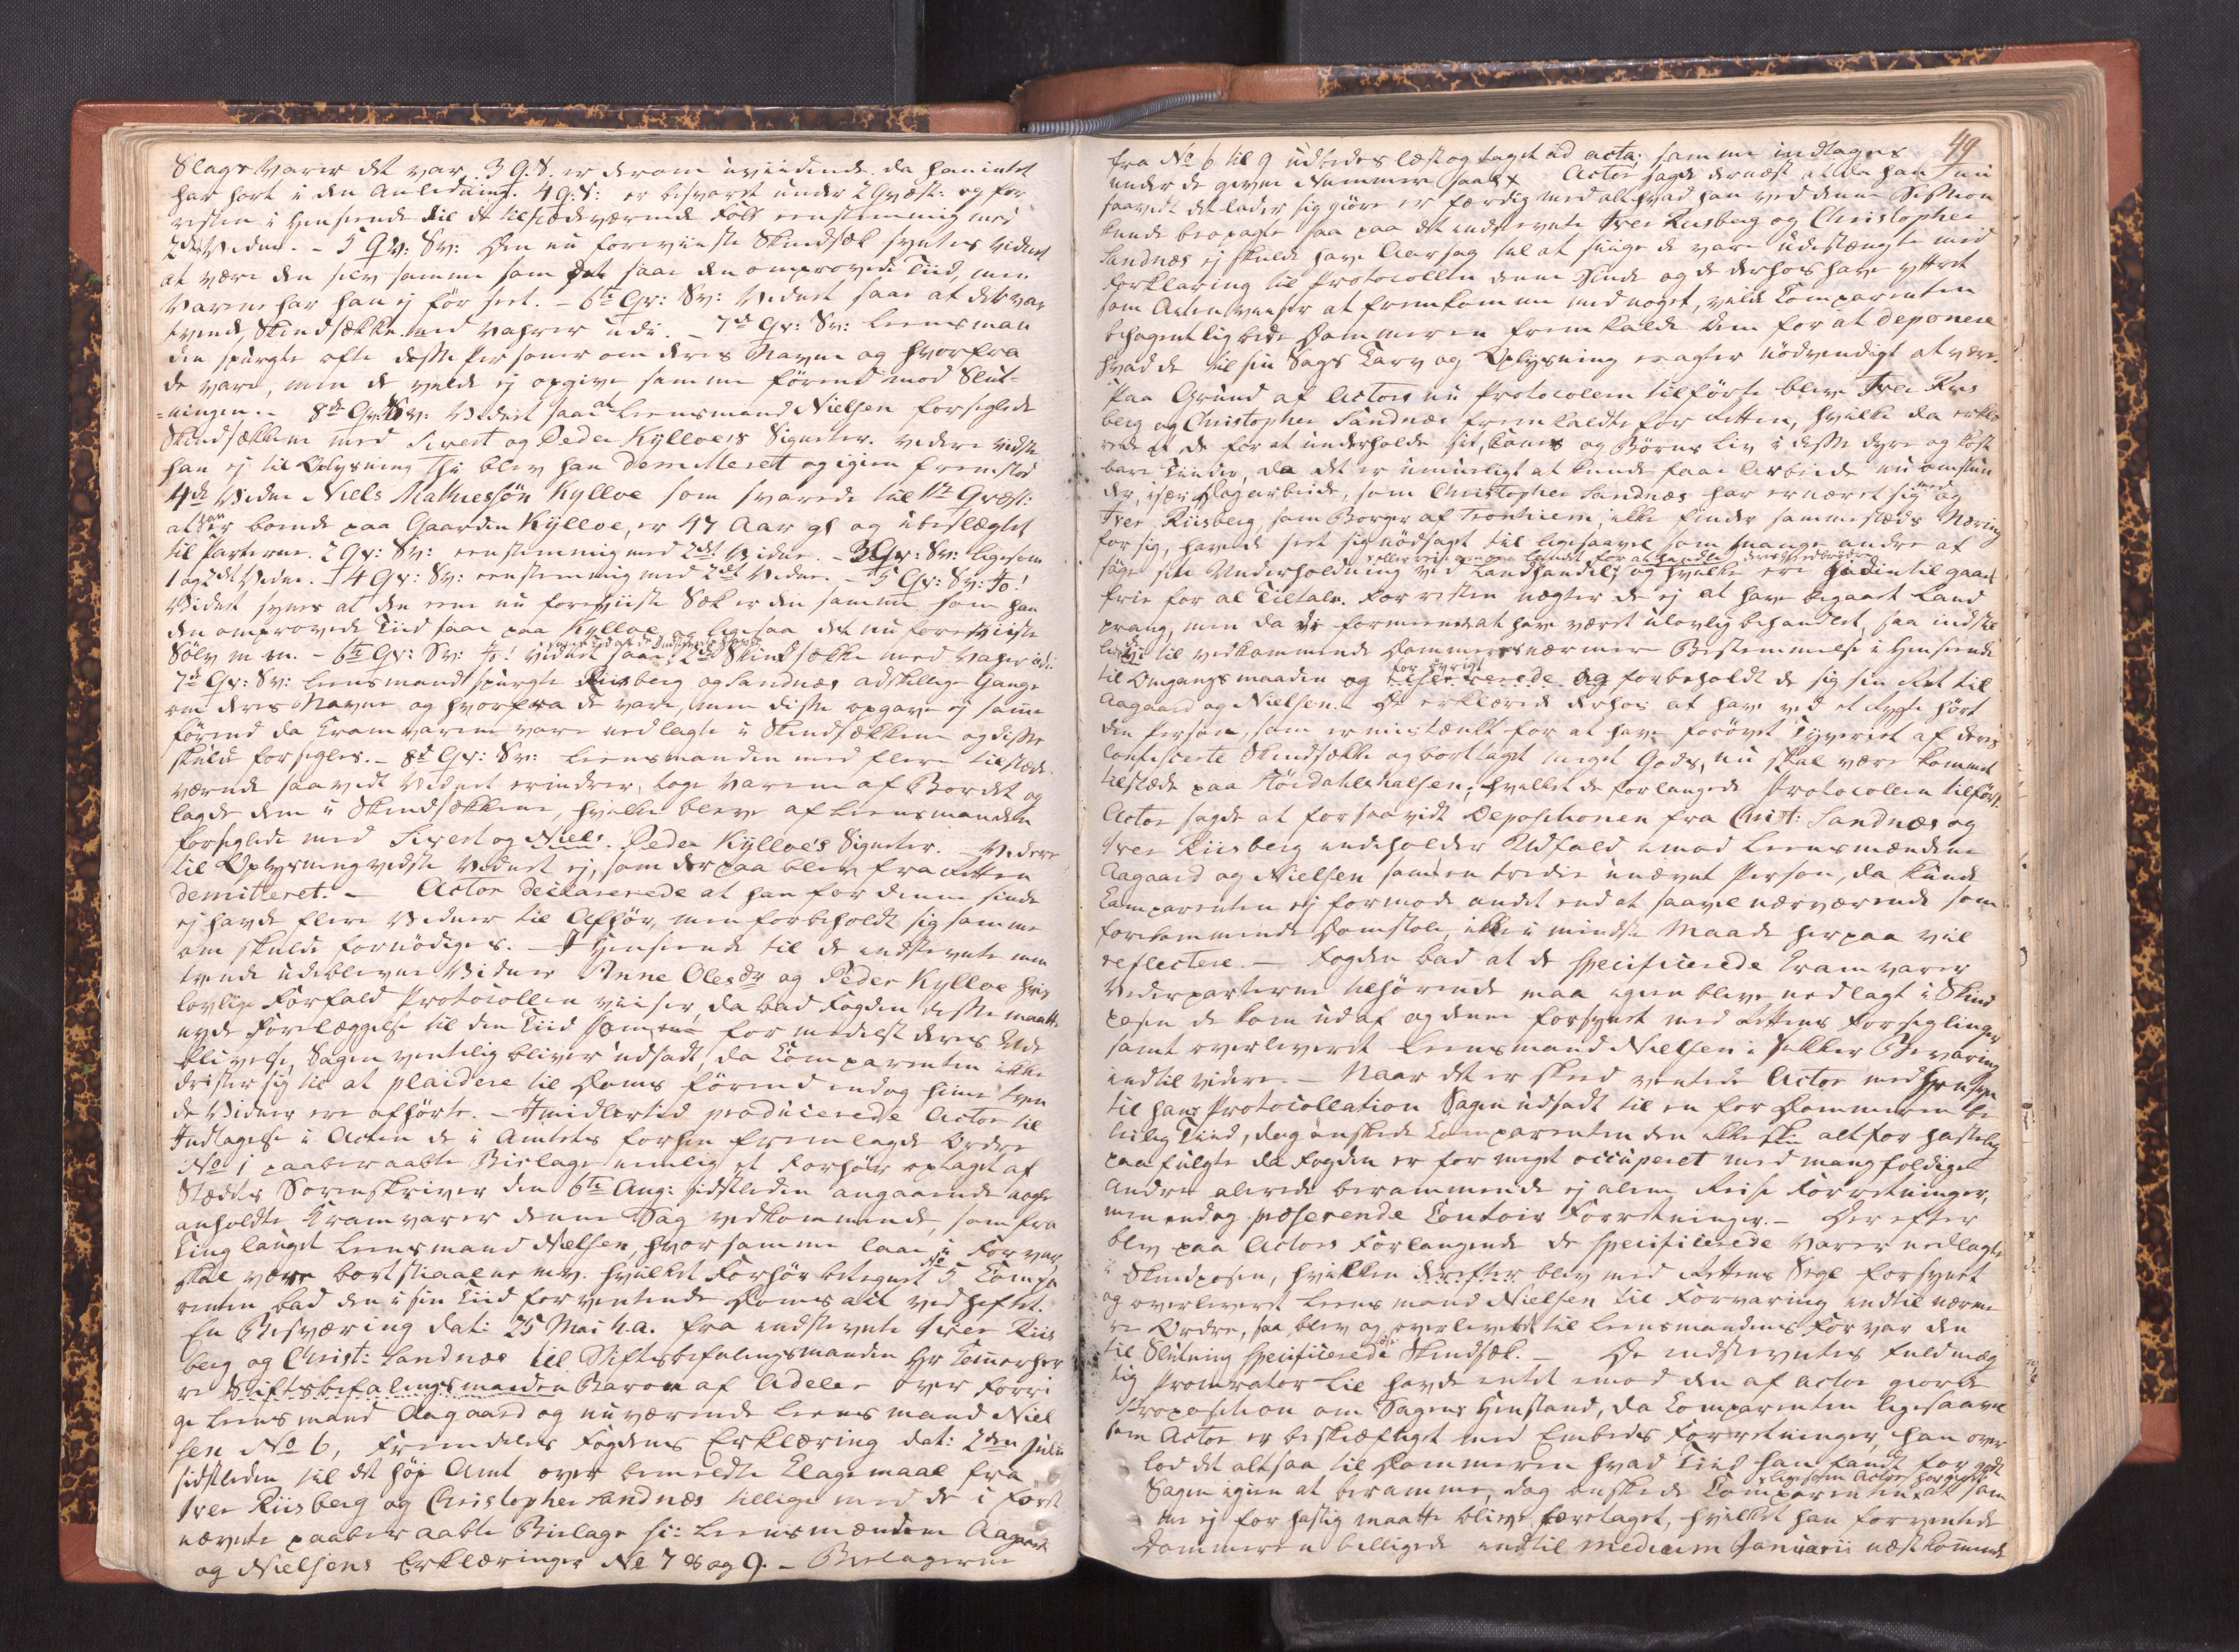 Slags Varer det var. 3 Q. S. er derom uvidende da han intet
har hørt i den Anledning. 4 Q: S: er besvaret under 2 Qvæst: og for
resten i Henseende til de tilstædeværende Folk eenstemmig med
2det Vidne. – 5 Qv: Sv: Den nu foreviiste Skindsæk syntes Vidnet
at være den selv samme som det saae den omprovede Tiid, men
Varene har han ej før seet. – 6te Qv: Sv: Vidnet saae at det var
tvende Skindsække med Vahrer udi. – 7de Qv: Sv: Leensman
den spurgte ofte disse Personer om deres Navne og hvorfra
de vare, men de vilde ej opgive samme förend mod Slut-
=ningen. – 8de Qv: Sv: Vidnet saae at Leensmand Nielsen forseglede
Skindsækkene med Sivert og Peder Kylloes Signeter. Videre vidste
han ej til Oplysning thi blev han demitteret og igien fremstod
4de Vidne Niels Mathiessön Kylloe som svarede til 1te Qvæst:
at han er boende paa Gaarden Kylloe, er 47 Aar gl og ubeslægtet
til Parterne. 2 Qv: Sv: eenstemmig med 2det Vidne. – 3 Qv: Sv: ligesom
1 og 2det Vidne. – 4 Qv: Sv: eenstemmig med 2det Vidne. – 5 Qv: Sv: Jo!
Vidnet synes at den eene nu foreviiste Sæk er den samme som han
den omprovede Tiid saae paa Kylloe og ligesaa det nu foreviiste
Sölv m m. – 6te Qv: Sv: Jo! Vidnet saae 2de Skindsække med Vahrer udi
7de Qv: Sv: Leensmand spurgte Riisberg og Sandnæs adskillige Gange
om deres Navne og hvorfra de vare, men disse opgave ej samme
förend da Kramvarene vare nedlagte i Skindsækkene og disse
skulde forsegles. – 8de Qv: Sv: Leensmanden med flere tilstæde
værende saavidt Vidnet erindrer, toge Varene af Bordet og
lagde dem i Skindsækkene, hvilke bleve af Leensmanden
forseglede med Sivert og Niels Peder Kylloe's Signeter. – Videre
til Oplysning vidste Vidnet ej, som derpaa blev fra Retten
demitteret. – Actor declarerede at han for denne sinde
ej havde flere Vidner til Afhör, men forbeholdt sig samme
om skulde fornödiges. – I Henseende til de indstevnte men
tvende udeblevne Vidner Anne Olesdr og Peder Kylloe hvis
lovlige Forfald Protocollen viiser, da bad Fogden disse maatte
nyde Forelæggelse til den Tiid som formedelst deres Ude
blivelse, Sagen ventelig bliver udsadt, da Comparenten ikke
drister sig til at plaidere til Doms förend endog hine tven
de Vidner ere afhörte. – Imidlertid producerede Actor til
Indtagelse i Acten de i Amtets forhen fremlagde Ordre
No 1 paaberaabte Bielage nemlig et Forhör optaget af
Stædets Sorenskriver den 6te Aug: sidstleden angaaende nogle
anholdte Kramvarer denne Sag vedkommende, som fra
Tinglauget Leensmand Nielsen, hvor samme laae i Forvar,
skal være bortstiaalne m.v. hvilket Forhör betegnet No 5 Compa
renten bad den i sin Tiid forventende Doms act vedheftet.
En Besværing dat: 25 Mai h.a. fra indstevnte Iver Riis
berg og Christ: Sandnæs til Stiftsbefalingsmanden Hr Kammerher
re Stiftsbefalingsmanden Baron af Adeler over forri
ge Leensmand Aagaard og nuværende Leensmand Niel
sen No 6, Fremdeles Fogdens Erklæring dat: 2den Julii
sidstleden til det høje Amt over bemeldte Klagemaal fra
Iver Riisberg og Christopher Sandnæs tillige med de i först
nævnte paaberaabte Bielage si: Leensmændene Aagaard
og Nielsens Erklæringer No 7 8 og 9. – Bielagerne
49
fra No 6 til 9 udbedes læst og taget ad acta; samme indtages
under de givne Nummer saal: Actor sagde dernæst at da han nu
saavidt det lader sig giöre er færdig med alt hvad han ved denne Session
kunde beopagte saa paa det indstevnte Iver Riisberg og Christopher
Sandnæs ej skulde have Aarsag til at siige de vare udestængte med
Forklaring til Protocollen denne Sinde og de derhos have yttret
som Acten viiser at fremkomme med noget, vilde Comparenten
behagentlig bede Dommeren fremkalde dem for at deponere
hvad de til sin Sags Tarv og Oplysning eragter nödvendigt at være.
Paa Grund af Actors nu Protocollen tilförte bleve Iver Riis
berg og Christopher Sandnæs fremkaldte for Retten, hvilke da erklæ
rede at de for at underholde sit, Kones og Börns Liv i disse dyre og kost
bare Tiider, da det er umueligt at kunde faae Arbeide nu omstun
der, især Slagarbeide, som Christopher Sandnæs har ernæret sig med og
Iver Riisberg, som Borger af Tronhiem, ikke finder sammesteds Næring
for sig, havde seet sig nödsaget til ligesaavel som mange andre at
söge sin Underholdning ved Landhandel, og hvilke ere hidindtil gaaet
frie for al Tiltale. For resten nægter de ej at have begaaet Land
prang, men da de formeener at have været ulovlig behandlet, saa indstil
lede de til vedkommende Dommeres nærmere Bestemmelse i Henseende
til Omgangsmaaden og for övrigt reserverede og forbeholdt de sig sin Ret til
Aagaard og Nielsen. De erklærede derhos at have ved et Rygte hört
den Person, som er mistænkt for at have forövet Tyveriet af deris
confiscerte Skindsække og borttaget meget Gods, nu skal være kommet
tilstæde paa Stördahlshalsen; hvilket de forlangede Protocollen tilfört.
Actor sagde at forsaavidt Depositionen fra Christ: Sandnæs og
Iver Riisberg indeholder Udfald imod Leensmændene
Aagaard og Nielsen samt en tredie unævnt Person, da kunde
Comparenten ej formode andet end at saavel nærværende som
forekommende Domstole, ikke i mindste Maade herpaa vil
reflectere. – Fogden bad at de specificerede Kramvarer
Vederparterne tilhörende maa igien blive nedlagt i Skind
posen de kom udaf og denne forsynet med Rettens Forseglinger
samt overleveret Leensmand Nielsen i sikker Bevaring
indtil videre. – Naar det er skeed ventede Actor med Hensyn
til hans Protocollation Sagen udsadt til en for Dommeren be
leilig Tiid, dog önskede Comparenten den ikke skee alt for hastelig
paafulgte da Fogden er for meget occuperet med mangfoldige
andre allerede berammende ej alene Reise Forretninger,
men endog presserende Contoir Forretninger. – Derefter
blev paa Actors Forlangende de specificerede Varer nedlagte
i Skindposen, hvilken derefter blev med Rettens Segl forsynet
og overleveret Leensmand Nielsen til Forvaring indtil nærme
re Ordre, saa blev og overleveret til Leensmandens Forvar den
til Slutning specificerede Skindsæk. – De indstevntes Fuldmæg
tig Procurator Lie havde intet imod den af Actor giorde
Proposition om Sagens Henstand, da Comparenten ligesaavel
som Actor er beskiæftiget med Embeds Forretninger, han over
lod det altsaa til Dommeren hvad Tiid han fandt for godt
Sagen igien at beramme, dog önskede Comparenten ligesom Actor har giort at sam
me ej for hastig maatte blive foretaget, hvilket han forventede
Dommeren billigede indtil medium Januarii næstkommende